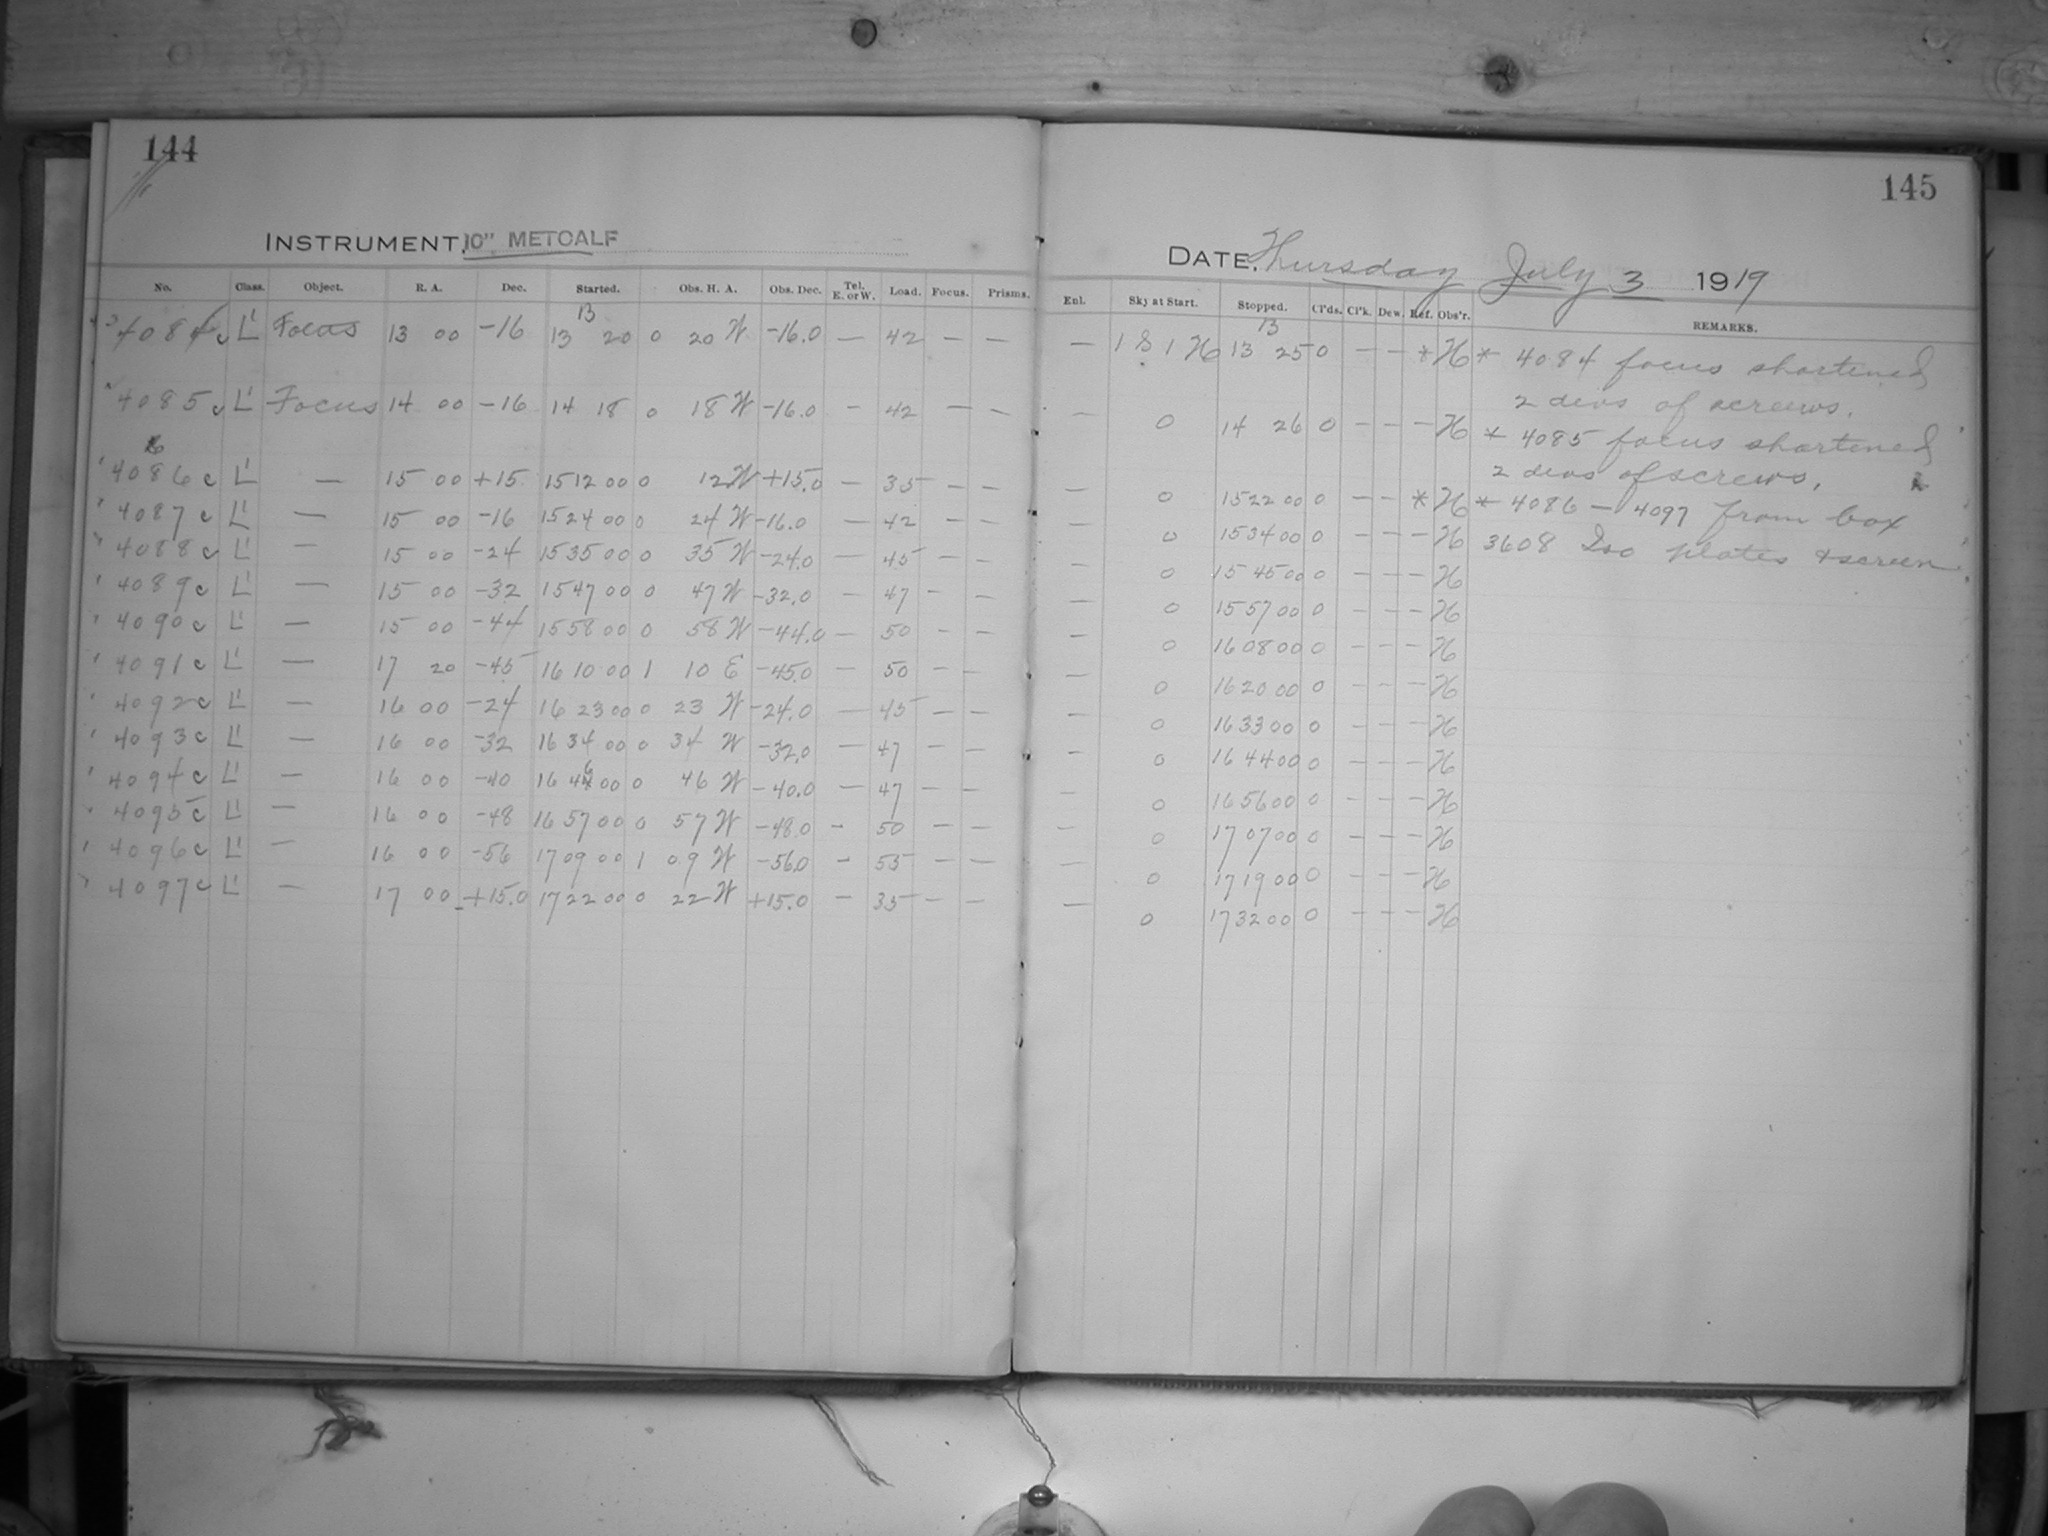 144
INSTRUMENT, 10" METCALF
No. Class. Object. R. A. Dec. Started. Obs. H. A. Obs. Dec. Tel. E. or W. Load. Focus. Prisms.
13
4084c L' Focus 13 00 -16 13 20 0 20 W -16.0 — 42 — —
4085c L' Focus 14 00 -16 14 18 0 18 W -16.0 - 42 — —
4086c L' — 15 00 +15 15 12 00 0 12 W +15.0 — 35 — —
4087c L' — 15 00 -16 15 24 00 0 24 W -16.0 — 42 — —
4088c L' — 15 00 -24 15 35 00 0 35 W -24.0 — 45 — —
4089c L' — 15 00 -32 15 47 00 0 47 W -32.0 — 47 - —
4090c L' — 15 00 -44 15 58 00 0 58 W -44.0 — 50 - —
4091c L' — 17 20 -45 16 10 00 1 10 E -45.0 — 50 - —
4092c L' — 16 00 -24 16 23 00 0 23 W -24.0 — 45 — —
4093c L' — 16 00 -32 16 34 00 0 34 W -32.0 — 47 - —
4094c L' — 16 00 -40 16 46 00 0 46 W -40.0 — 47 - —
4095c L' — 16 00 -48 16 57 00 0 57 W -48.0 - 50 — —
4096c L' — 16 00 -56 17 09 00 1 09 W -56.0 - 55 — —
4097c L' — 17 00 +15.0 17 22 00 0 22 W +15.0 — 35 — —
145
DATE, Thursday July 3 1919
Enl. Sky at Start. Stopped. Cl'ds. Cl'k. Dew. Ref. Obs'r. REMARKS.
13
— 1 S 1 H 13 25 0 — — * H * 4084 focus shortened
2 divs of screws.
— 0 14 26 0 — — — H * 4085 focus shortened
2 divs of screws.
— 0 15 22 00 0 — — * H * 4086 — 4097 from box
— 0 15 34 00 0 — — — H 3608 Iso plates & screen
— 0 15 45 00 0 — — — H
— 0 15 57 00 0 — — — H
— 0 16 08 00 0 — — — H
— 0 16 20 00 0 — — — H
— 0 16 33 00 0 — — — H
— 0 16 44 00 0 — — — H
— 0 16 56 00 0 — — — H
— 0 17 07 00 0 — — — H
— 0 17 19 00 0 — — — H
— 0 17 32 00 0 — — — H